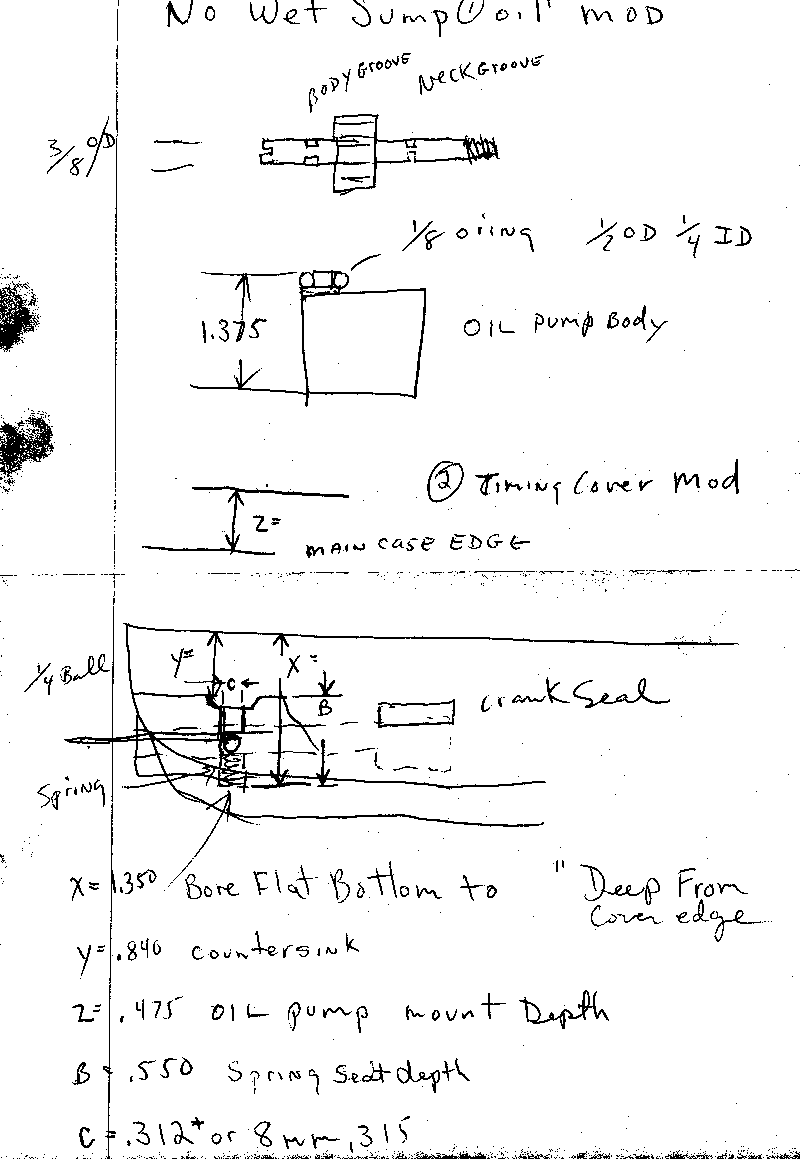 No Wet Sump ① oil" mod
BODY GROOVE NECK GROOVE
3/8 OD
1/8 oring 1/2 OD 1/4 ID
1.375
OIL Pump Body
② Timing Cover Mod
Z=
MAIN CASE EDGE
1/4 Ball
Y=
C
X=
B
crank Seal
Spring
X=1.350 Bore Flat Bottom to " Deep From
cover edge
Y=.840 countersink
Z= .475 OIL pump mount Depth
B = .550 Spring Seat depth
C = .312+ or 8mm .315